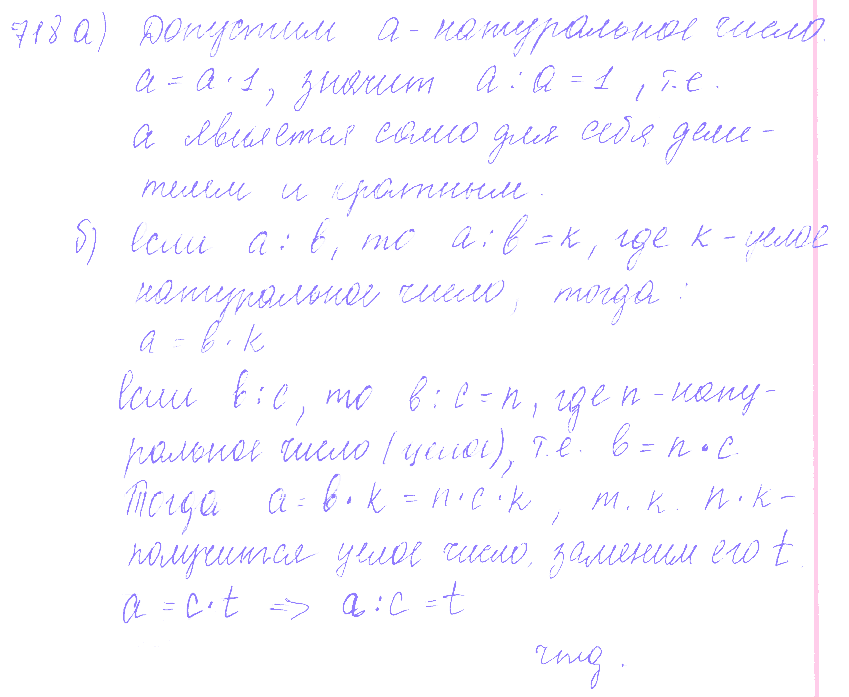 718 а) Допустим а - натуральное число.
а = а · 1, значит а : а = 1, т.е.
а является само для себя дели-
телем и кратным.
б) Если а : в, то а : в = к, где к - целое
натуральное число, тогда :
а = в · к
Если в : с, то в : с = n, где n - нату-
ральное число (целое), т.е. в = n · с.
Тогда а = в · к = n · с · к, т.к. n · к -
получится целое число, заменим его t.
а = с · t => а : с = t
чтд.